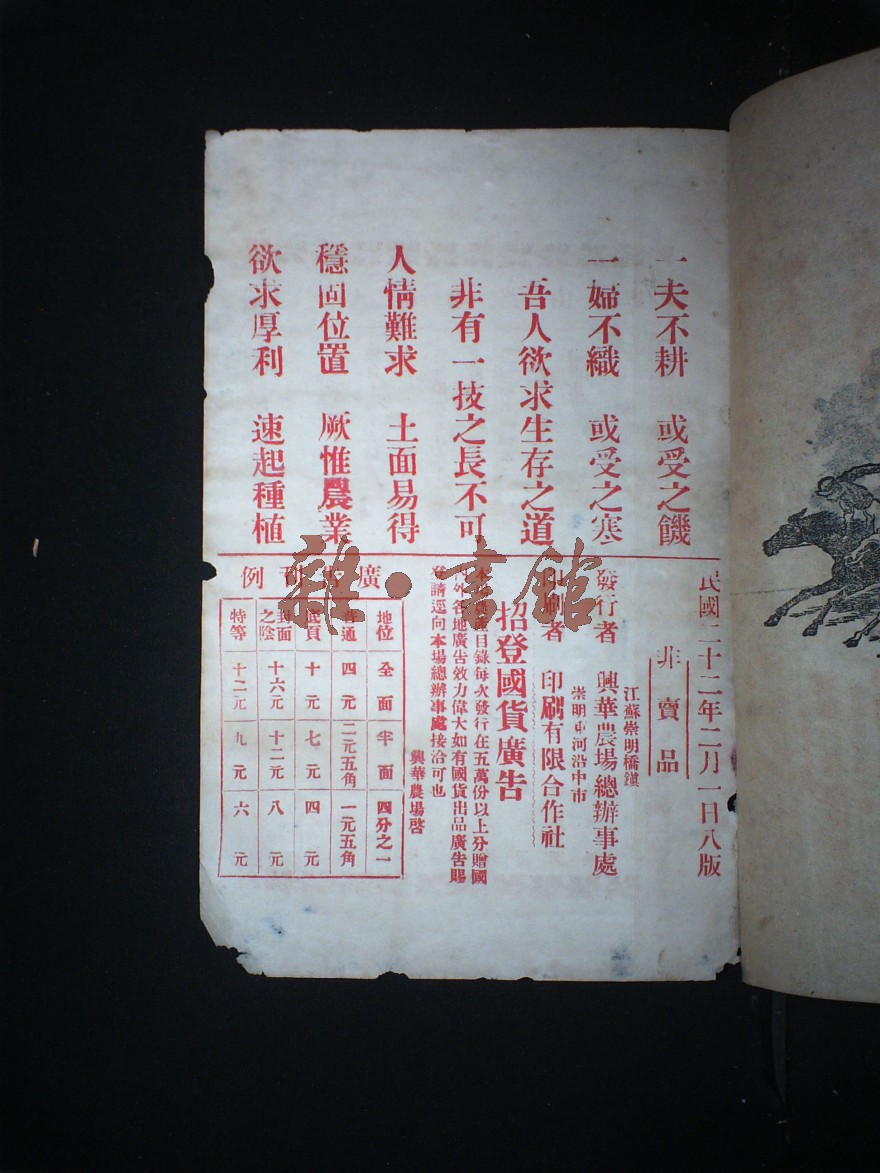 一夫不耕　或受之饑
一婦不織　或受之寒
吾人欲求生存之道
非有一技之長不可
人情難求　土面易得
穩固位置　厥惟農業
欲求厚利　速起種植
民國二十二年二月一日八版
非賣品
江蘇崇明橋鎮
發行者　興華農場總辦事處
崇明東河沿中市
印刷者　印刷有限合作社
招登國貨廣告
目錄每次發行在五萬份以上分贈國
外各地廣告效力偉大如有國貨出品廣告賜
登請逕向本場總辦事處接洽可也
興華農場啓
廣　例
地位　全面　半面　四分之一
普通　四元　二元五角　一元五角
底頁　十元　七元　四元
封面之陰　十六元　十二元　八元
特等　十二元　九元　六元
雜·書館